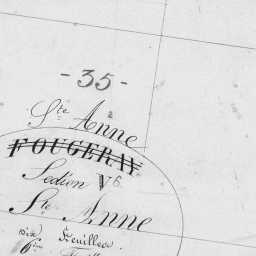 - 35 -
Ste Anne
2
FOUGERAY
Section V6.
Ste Anne
six feuilles
6me